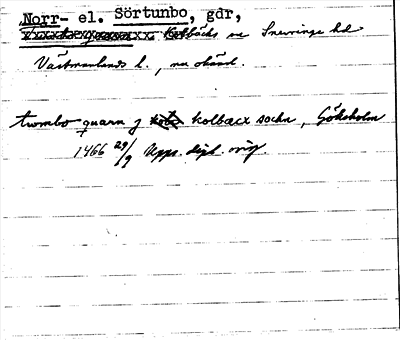 Norr- el. Sörtunbo, gdr,
Kolbäcks sn Snevringe hd
Västmanlands l., nu okänd.
twmbo qvarn j kolbæcx sochn, Göksholm
1466 29/9 Upps. dipl. orig.